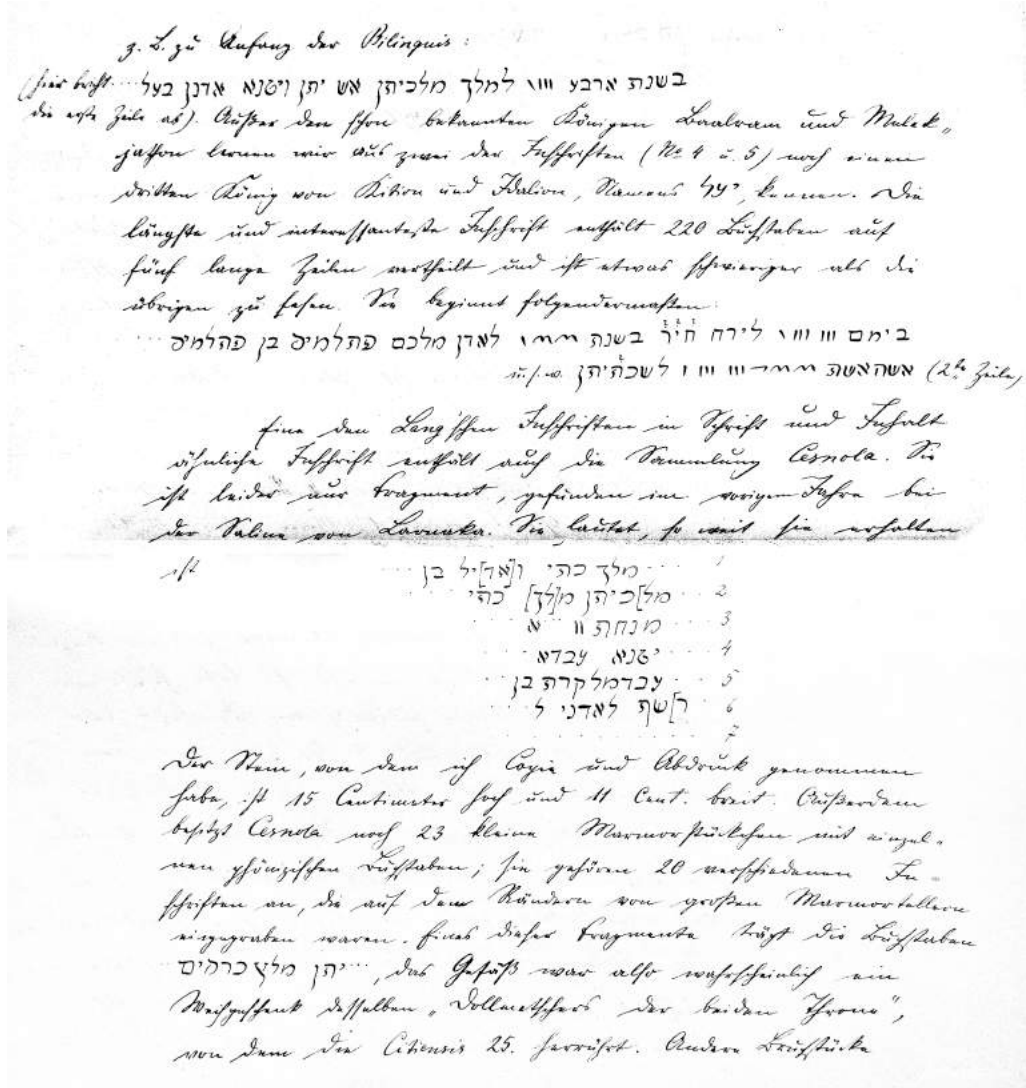 z. B. zu Anfang der Bilinguis:
(hier bricht ···· בשנת ארבע ׀׀׀׀ למלך מלכיתן אש יתן ויטנא אדנן בעל
die erste Zeile ab). Außer den schon bekannten Königen Baalram und Melek„
jathon lernen wir aus zwei der Inschriften (№ 4 u. 5) noch einen
dritten König von Kition und Idalion, Namens, kennen. Die
längste und interessanteste Inschrift enthält 220 Buchstaben auf
fünf lange Zeilen vertheilt und ist etwas schwieriger als die
übrigen zu lesen. Sie beginnt folgendermaßen:
בימם ׀׀׀ ׀׀׀ ׀ לירח חיר בשנת לאדן מלכם פתלמיס בן פתלמיס ····
(2te Zeile) אשהאשת לשכתיתן u. s. w.
Eine den Lang'schen Inschriften in Schrift und Inhalt
ähnliche Inschrift enthält auch die Sammlung Cesnola. Sie
ist leider nur Fragment, gefunden im vorigen Jahre bei
der Saline von Larnaka. Sie lautet, so weit sie erhalten
ist
1 ···· מלך כתי ו[אד]יל בן ····
2 ··· מל]כיתן מ[לך] כתי ···
3 ···· מנחת ׀׀ א ····
4 ···· יטנא עבדא
5 ··· עבדמלקרת בן ···
6 ·· ר]שף לאדני ל ····
7 · · · · · · ·
Der Stein, von dem ich Copie und Abdruck genommen
habe, ist 15 Centimeter hoch und 11 Cent. breit. Außerdem
besitzt Cesnola noch 23 kleine Marmorstückchen mit einzel-
nen phönizischen Buchstaben; sie gehören 20 verschiedenen In-
schriften an, die auf dem Rändern von großen Marmortellern
eingegraben waren. Eines dieser Fragmente trägt die Buchstaben
יתן מלץ כרסים ····, das Gefäß war also wahrscheinlich ein
Weihgeschenk desselben „Dollmetschers der beiden Throne",
von dem die Citiensis 25. herrührt. Andere Bruchstücke